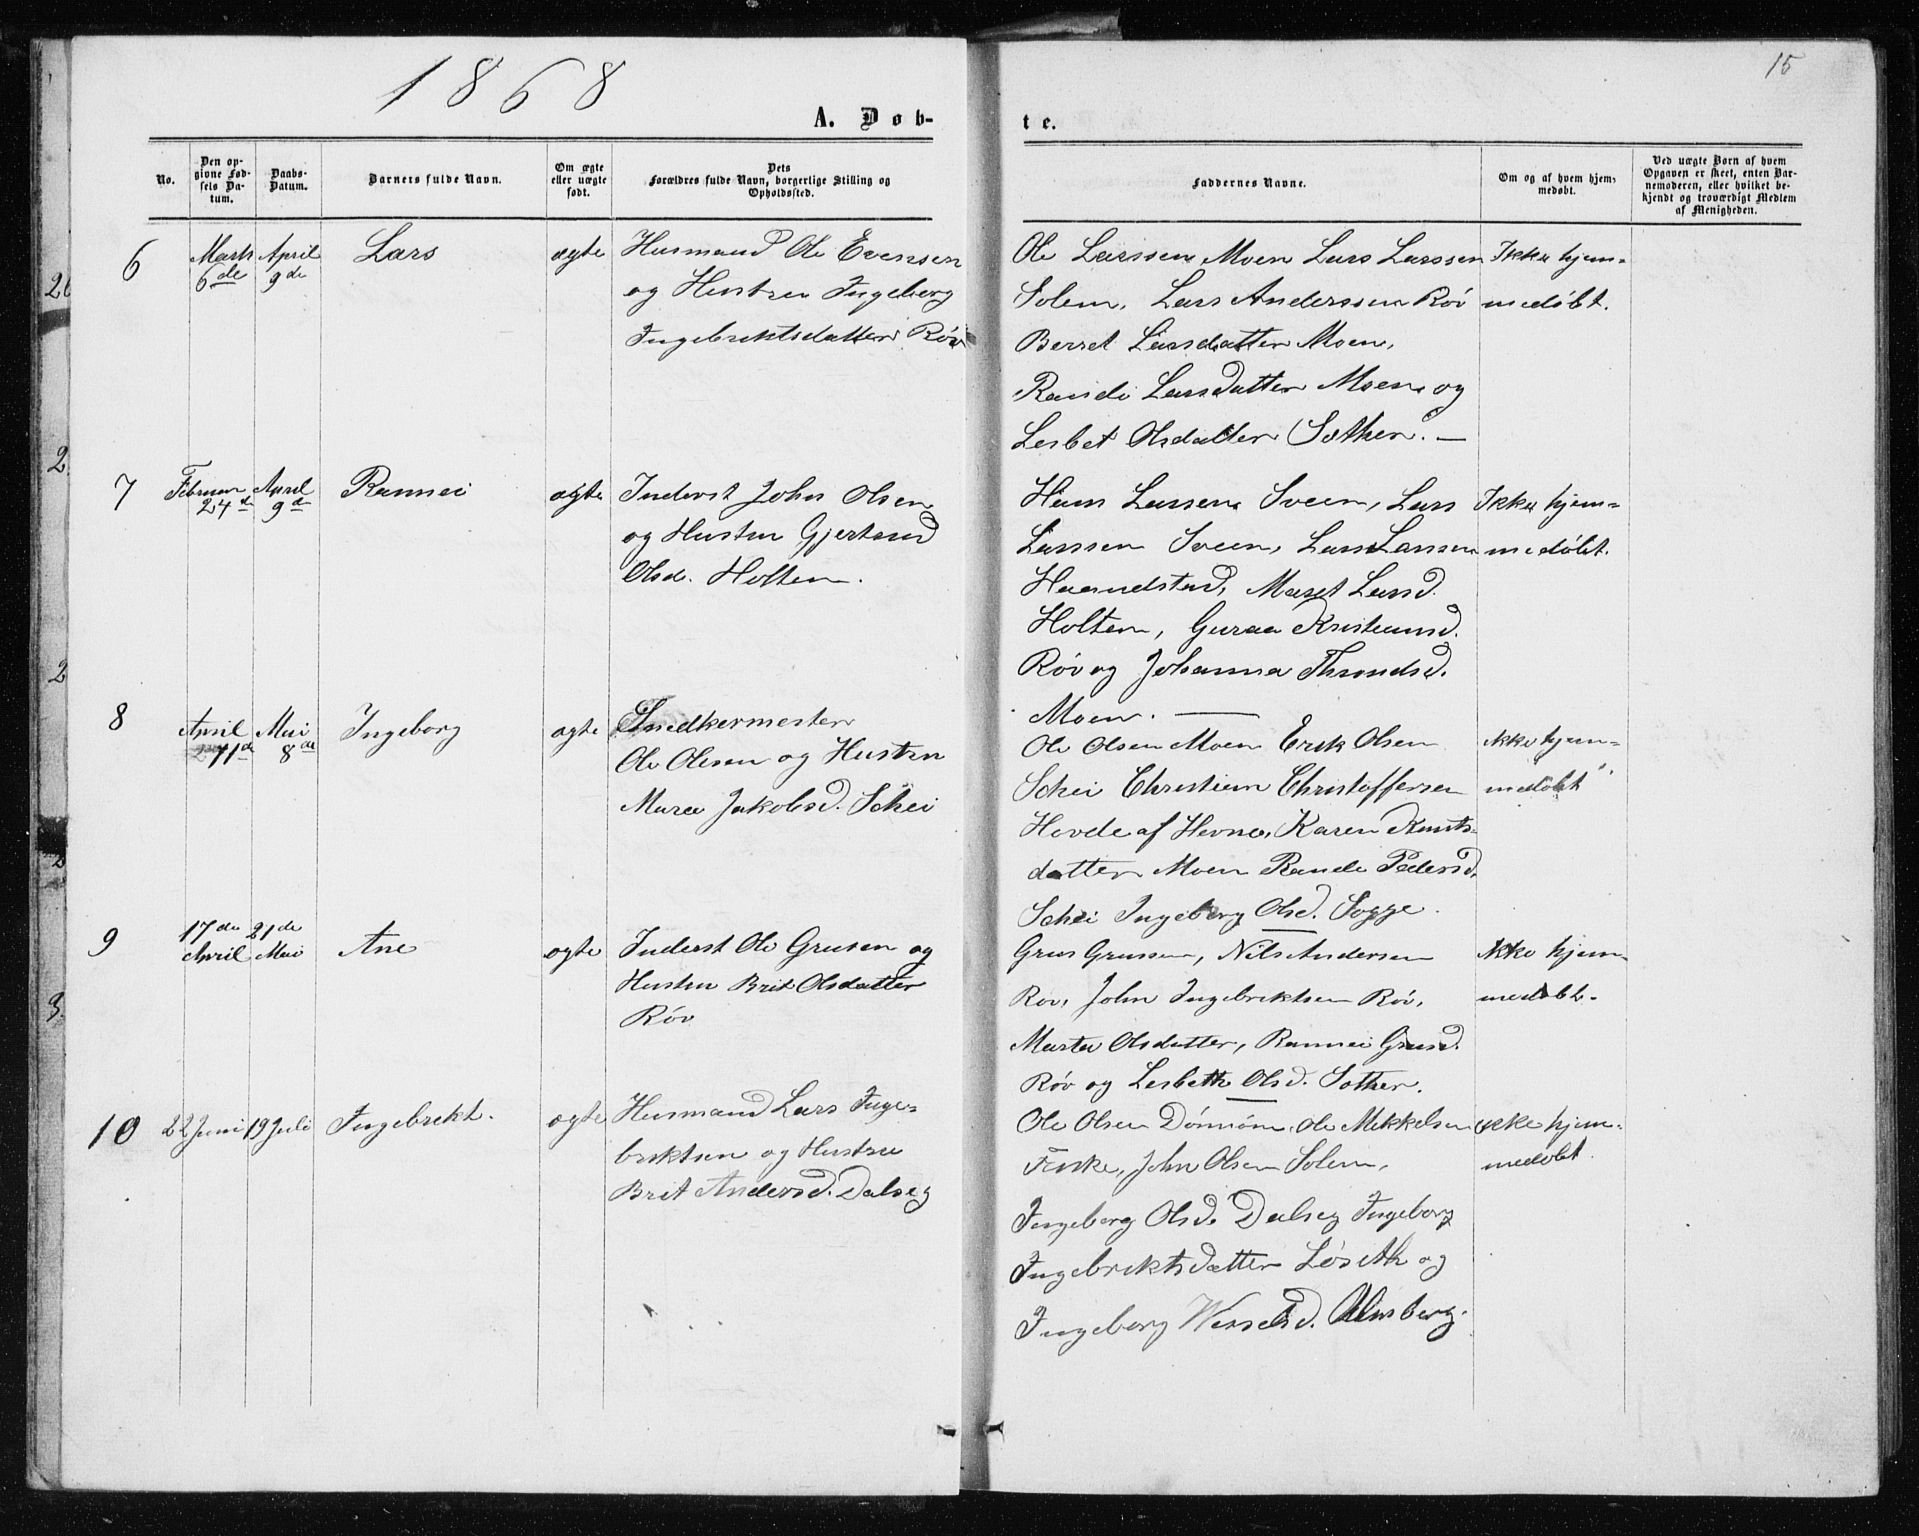 1868
15
A. Døb-
te.
No.
Den op-
givne Fød-
sels Da-
tum.
Daabs-
Datum.
Barnets fulde Navn.
Om ægte
eller uægte
født.
Dets
Forældres fulde Navn, borgerlige Stilling og
Opholdssted.
Faddernes Navne.
Om og af hvem hjem-
medøbt.
Ved uægte Børn af hvem
Opgaven er skeet, enten Bar-
nemoderen, eller hvilket be-
kjendt og troværdigt Medlem
af Menigheden.
6
Marts
6de
April
9de
Lars
ægte
Husmand Ole Evensen
og Hustru Ingeborg
Ingebrektsdatter Röv
Ole Larssen Moen Lars Larssen
Solem, Lars Anderssen Röv
Berret Larsdatter Moen,
Randi Larsdatter Moen og
Lesbet Olsdatter Söther. —
Ikke hjem-
medøbt.
7
Februar
24de
April
9de
Rannei
ægte
Inderst John Olsen
og Hustru Gjertrud
Olsd. Holten.
Hans Larssen Sveen, Lars
Larssen Sveen, Lars Larssen
Haandstad, Maret Larsd.
Holten, Guraa Kristiansd.
Röv og Johanna Throndsd.
Moen. —
Ikke hjem-
medøbt.
8
April
11de
Mai
8de
Ingeborg
ægte
Snedkermester
Ole Olesen og Hustru
Marea Jakobsd. Schei
Ole Olsen Moen Erik Olsen
Schei Christian Christoffersen
Hovde af Hevne, Karen Knuts-
datter Moen Rande Pedersd.
Schei Ingeborg Olsd. Sogge.
ikke hjem-
medøbt
9
17de
April
21de
Mai
Ane
ægte
Inderst Ole Grusen og
Hustru Brit Olsdatter
Röv
Grus Grussen, Nils Andersen
Röv, John Ingebriktsen Röv,
Marta Olsdatter, Rannei Grusd.
Röv og Lesbeth Olsd. Söther.
ikke hjem-
medøbt.
10
22 Juni
19 Juli
Ingebrekt.
ægte
Husmand Lars Inge-
brektsen og Hustru
Brit Andersd. Dalseg
Ole Olsen Dönnöm, Ole Mekkelsen
Fiske, John Olsen Solem,
Ingeborg Olsd. Dalseg Ingeborg
Ingebrektsdatter Löseth og
Ingeborg Wesselsd. Almberg.
ikke hjem-
medøbt.